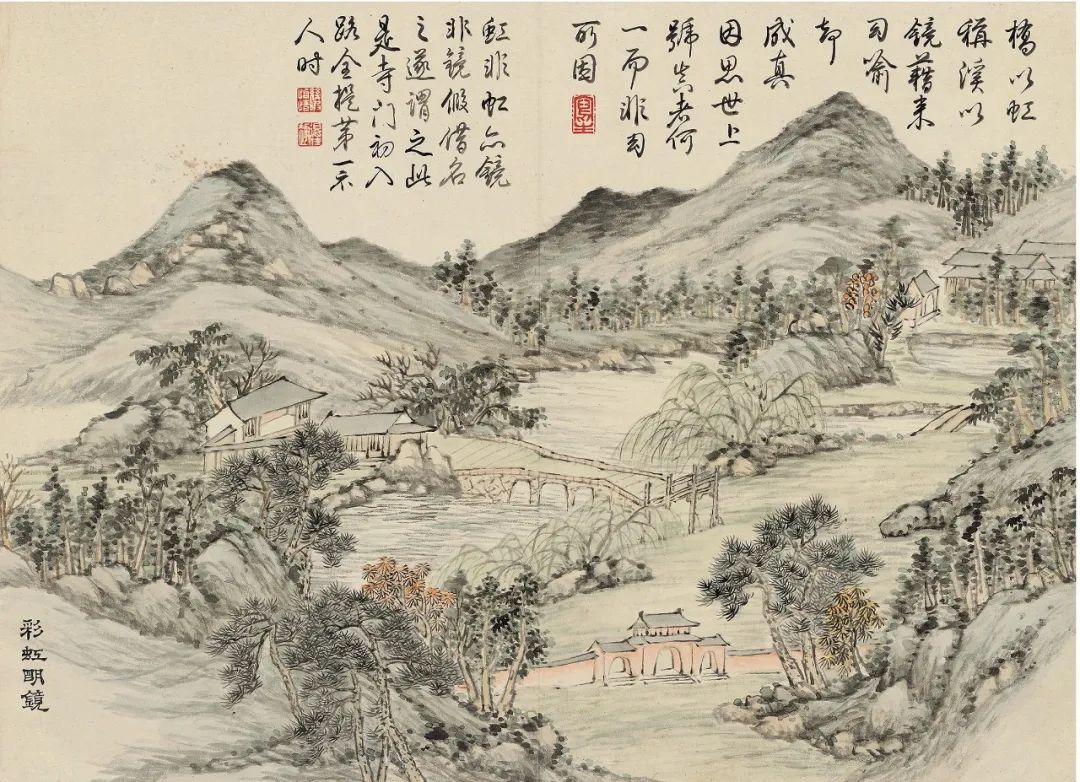 橋以虹
稱溪以
鏡藉來
幻喻
却
成真
因思世上
號真者何
一而非幻
所因
虹非虹亦鏡
非鏡假借名
之遂謂之此
是寺門初入
路全提第一示
人時
彩虹明鏡